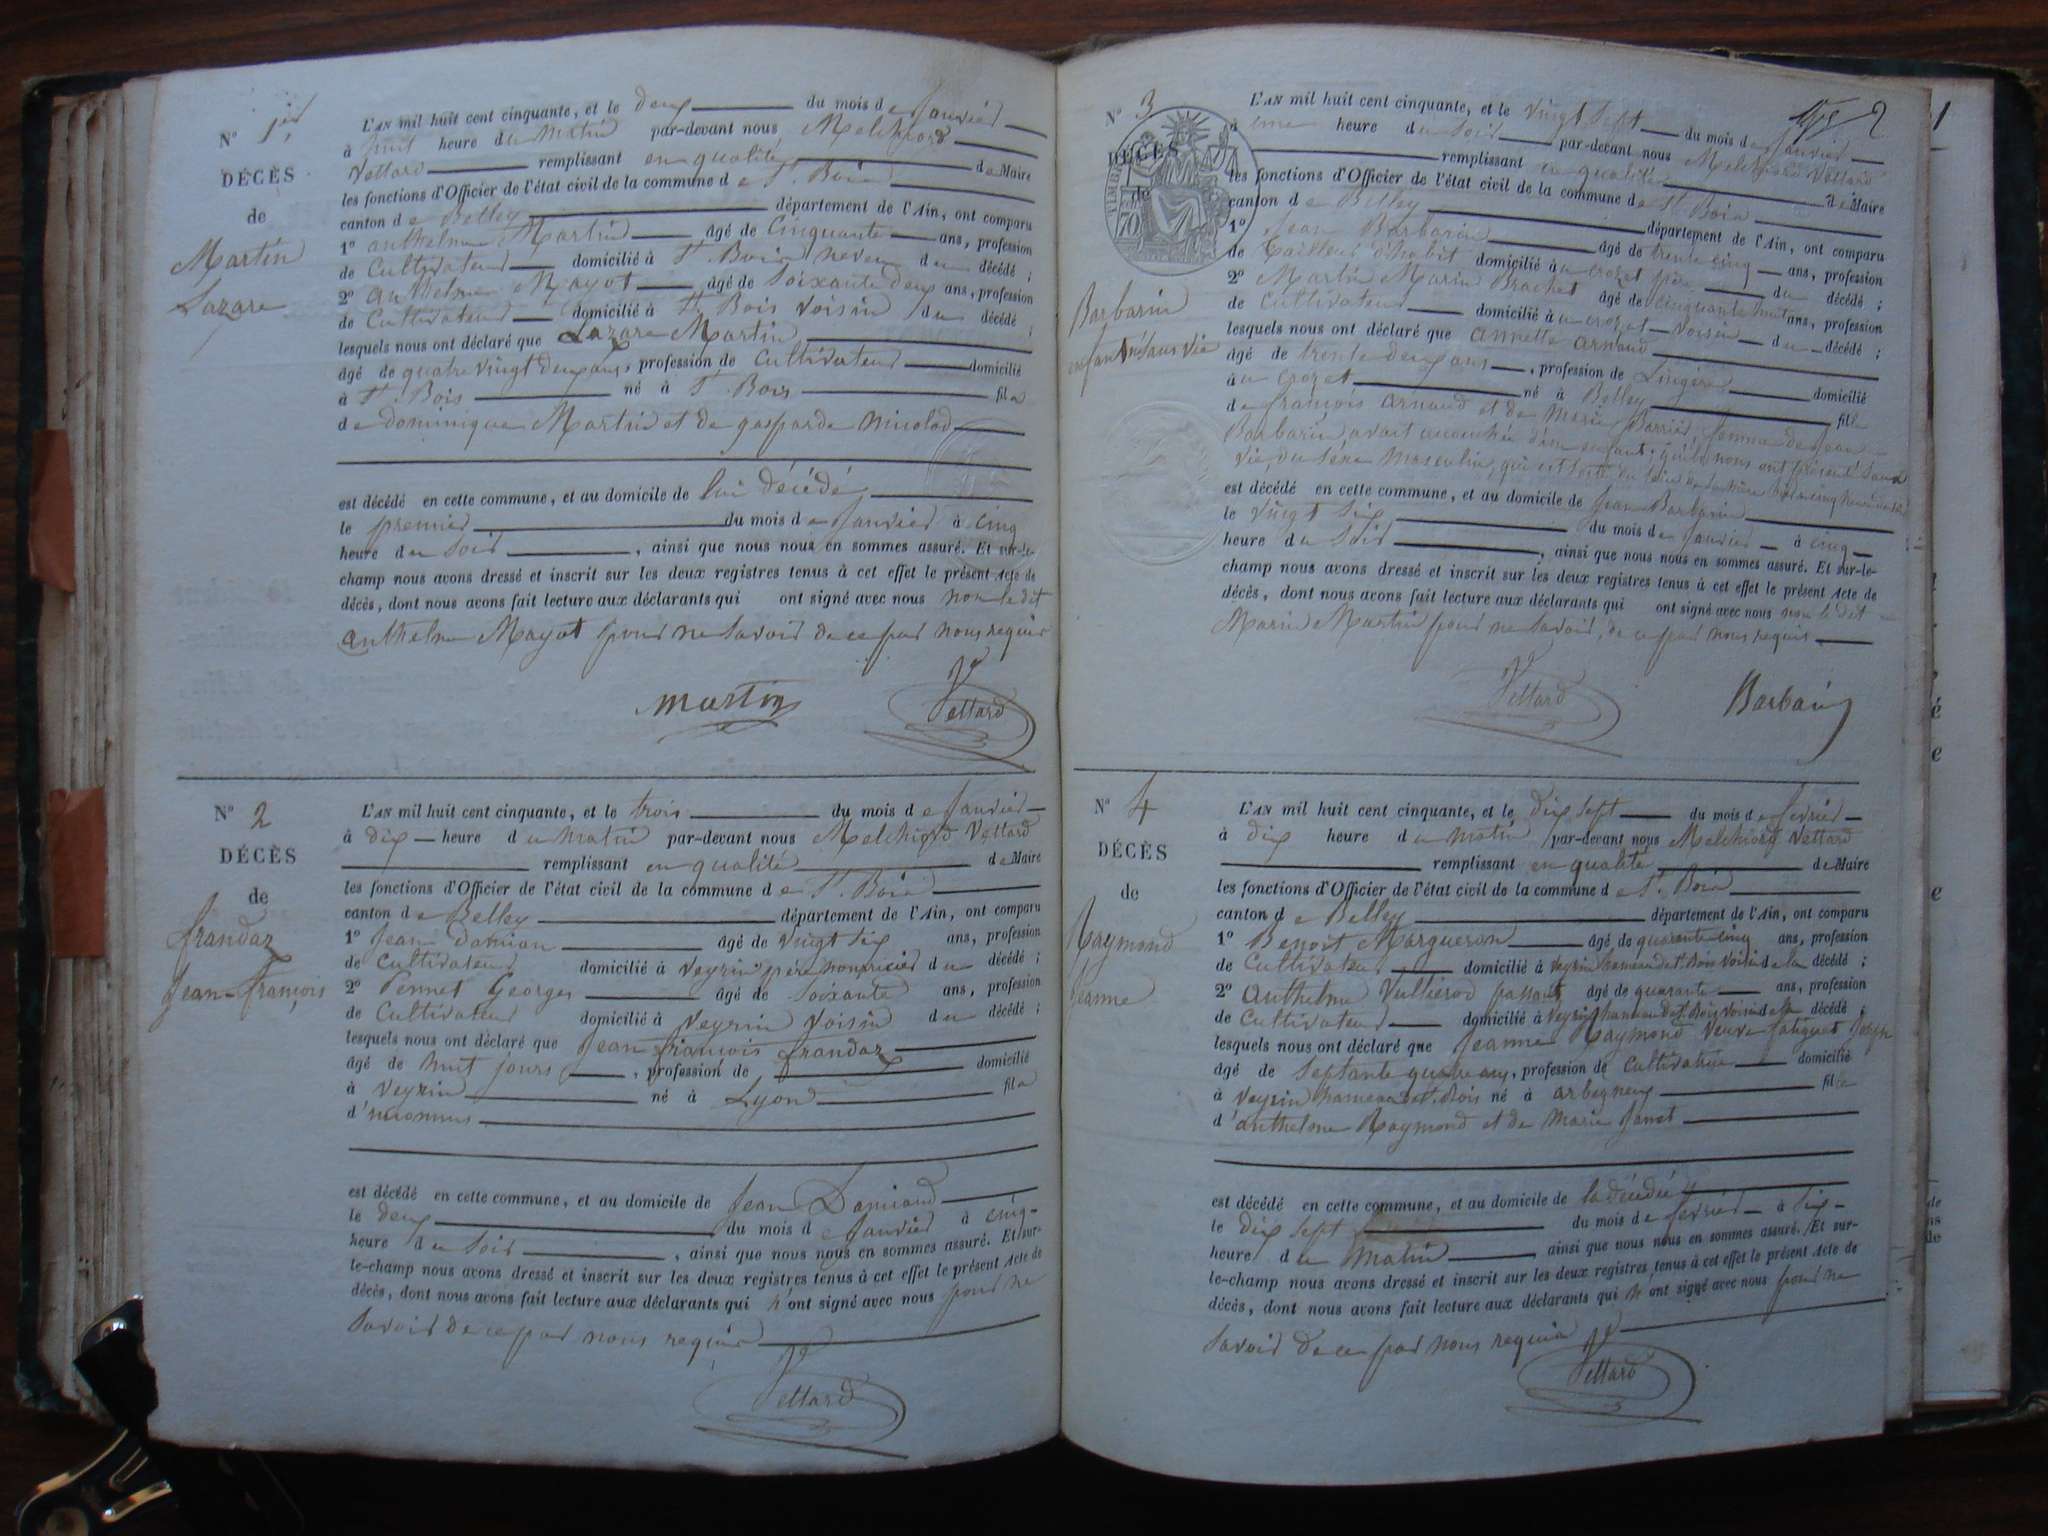 N° 1er
DÉCÈS
de
Martin
Lazare
L'AN mil huit cent cinquante, et le deux du mois de Janvier
à huit heure du matin par-devant nous Melchiord
Vettard remplissant en qualité de Maire
les fonctions d'Officier de l'état civil de la commune de St. Bois
canton de Belley département de l'Ain, ont comparu
1° Anthelme Martin âgé de Cinquante ans, profession
de Cultivateur domicilié à St. Bois neveu du décédé ;
2° Anthelme Mayot âgé de Soixante deux ans, profession
de Cultivateur domicilié à St. Bois voisin du décédé ;
lesquels nous ont déclaré que Lazare Martin
âgé de quatre vingt deux ans, profession de Cultivateur domicilié
à St. Bois né à St. Bois fils
de Dominique Martin et de gasparde
est décédé en cette commune, et au domicile de lui décédé
le premier du mois de Janvier à cinq
heure du Soir, ainsi que nous nous en sommes assuré. Et sur-le-
champ nous avons dressé et inscrit sur les deux registres tenus à cet effet le présent Acte de
décès, dont nous avons fait lecture aux déclarants qui ont signé avec nous non le dit
Anthelme Mayot pour ne Savoir de ce par nous requis
Martin Vettard
N° 2
DÉCÈS
de
frandaz
Jean-françois
L'AN mil huit cent cinquante, et le trois du mois de Janvier
à dix heure du matin par-devant nous Melchiord Vettard
remplissant en qualité de Maire
les fonctions d'Officier de l'état civil de la commune de St. Bois
canton de Belley département de l'Ain, ont comparu
1° Jean Damian âgé de vingt six ans, profession
de Cultivateur domicilié à Veyrin père nourricier du décédé ;
2° Pennet Georges âgé de Soixante ans, profession
de Cultivateur domicilié à Veyrin Voisin du décédé ;
lesquels nous ont déclaré que Jean françois frandaz
âgé de huit jours, profession de domicilié
à Veyrin né à Lyon fils
d'inconnus
est décédé en cette commune, et au domicile de Jean Damiand
le deux du mois de Janvier à cinq
heure du Soir, ainsi que nous nous en sommes assuré. Et sur-
le-champ nous avons dressé et inscrit sur les deux registres tenus à cet effet le présent Acte de
décès, dont nous avons fait lecture aux déclarants qui n'ont signé avec nous pour ne
Savoir de ce par nous requis
Vettard
2
N° 3
DÉCÈS
de
TIMBRE
70
Barbarin
enfant né sans vie
L'AN mil huit cent cinquante, et le vingt Sept du mois de Janvier
à une heure du Soir par-devant nous Melchiord Vettard
remplissant en qualité de Maire
les fonctions d'Officier de l'état civil de la commune de St. Bois
canton de Belley département de l'Ain, ont comparu
1° Jean Barbarin âgé de trente cinq ans, profession
de tailleur d'habit domicilié à au crozet père du décédé ;
2° Martin Marin Brachet âgé de cinquante huit ans, profession
de Cultivateur domicilié à au crozet Voisin du décédé ;
lesquels nous ont déclaré que Annette Arnaud
âgé de trente deux ans, profession de Lingère domicilié
à au crozet né à Belley fille
de françois Arnaud et de Marie Barrier, femme de Jean
Barbarin avait accouchée d'un enfant qu'ils nous ont présenté Sans
Vie, du Sexe masculin, qui est Sorti du Sein de Sa mère
est décédé en cette commune, et au domicile de Jean Barbarin
le vingt Six du mois de Janvier à cinq
heure du Soir, ainsi que nous nous en sommes assuré. Et sur-le-
champ nous avons dressé et inscrit sur les deux registres tenus à cet effet le présent Acte de
décès, dont nous avons fait lecture aux déclarants qui ont signé avec nous non le dit
Marin Martin pour ne Savoir, de ce par nous requis
Vettard Barbarin
N° 4
DÉCÈS
de
Raymond
Jeanne
L'AN mil huit cent cinquante, et le dix Sept du mois de février
à dix heure du matin par-devant nous Melchiord Vettard
remplissant en qualité de Maire
les fonctions d'Officier de l'état civil de la commune de St. Bois
canton de Belley département de l'Ain, ont comparu
1° Benoit Margueron âgé de quarante cinq ans, profession
de Cultivateur domicilié à Veyrin hameau de St. Bois Voisin de la décédé ;
2° Anthelme Vullierod âgé de quarante ans, profession
de Cultivateur domicilié à Veyrin hameau de St. Bois Voisin de la décédé ;
lesquels nous ont déclaré que Jeanne Raymond Veuve
âgé de Septante quatre ans, profession de Cultivatrice domicilié
à Veyrin hameau de St. Bois né à arbignieu fille
d'anthelme Raymond et de Marie Janet
est décédé en cette commune, et au domicile de la décédée
le dix Sept du mois de février à Six
heure du Matin, ainsi que nous nous en sommes assuré. Et sur-
le-champ nous avons dressé et inscrit sur les deux registres tenus à cet effet le présent Acte de
décès, dont nous avons fait lecture aux déclarants qui n'ont signé avec nous pour ne
Savoir de ce par nous requis
Vettard